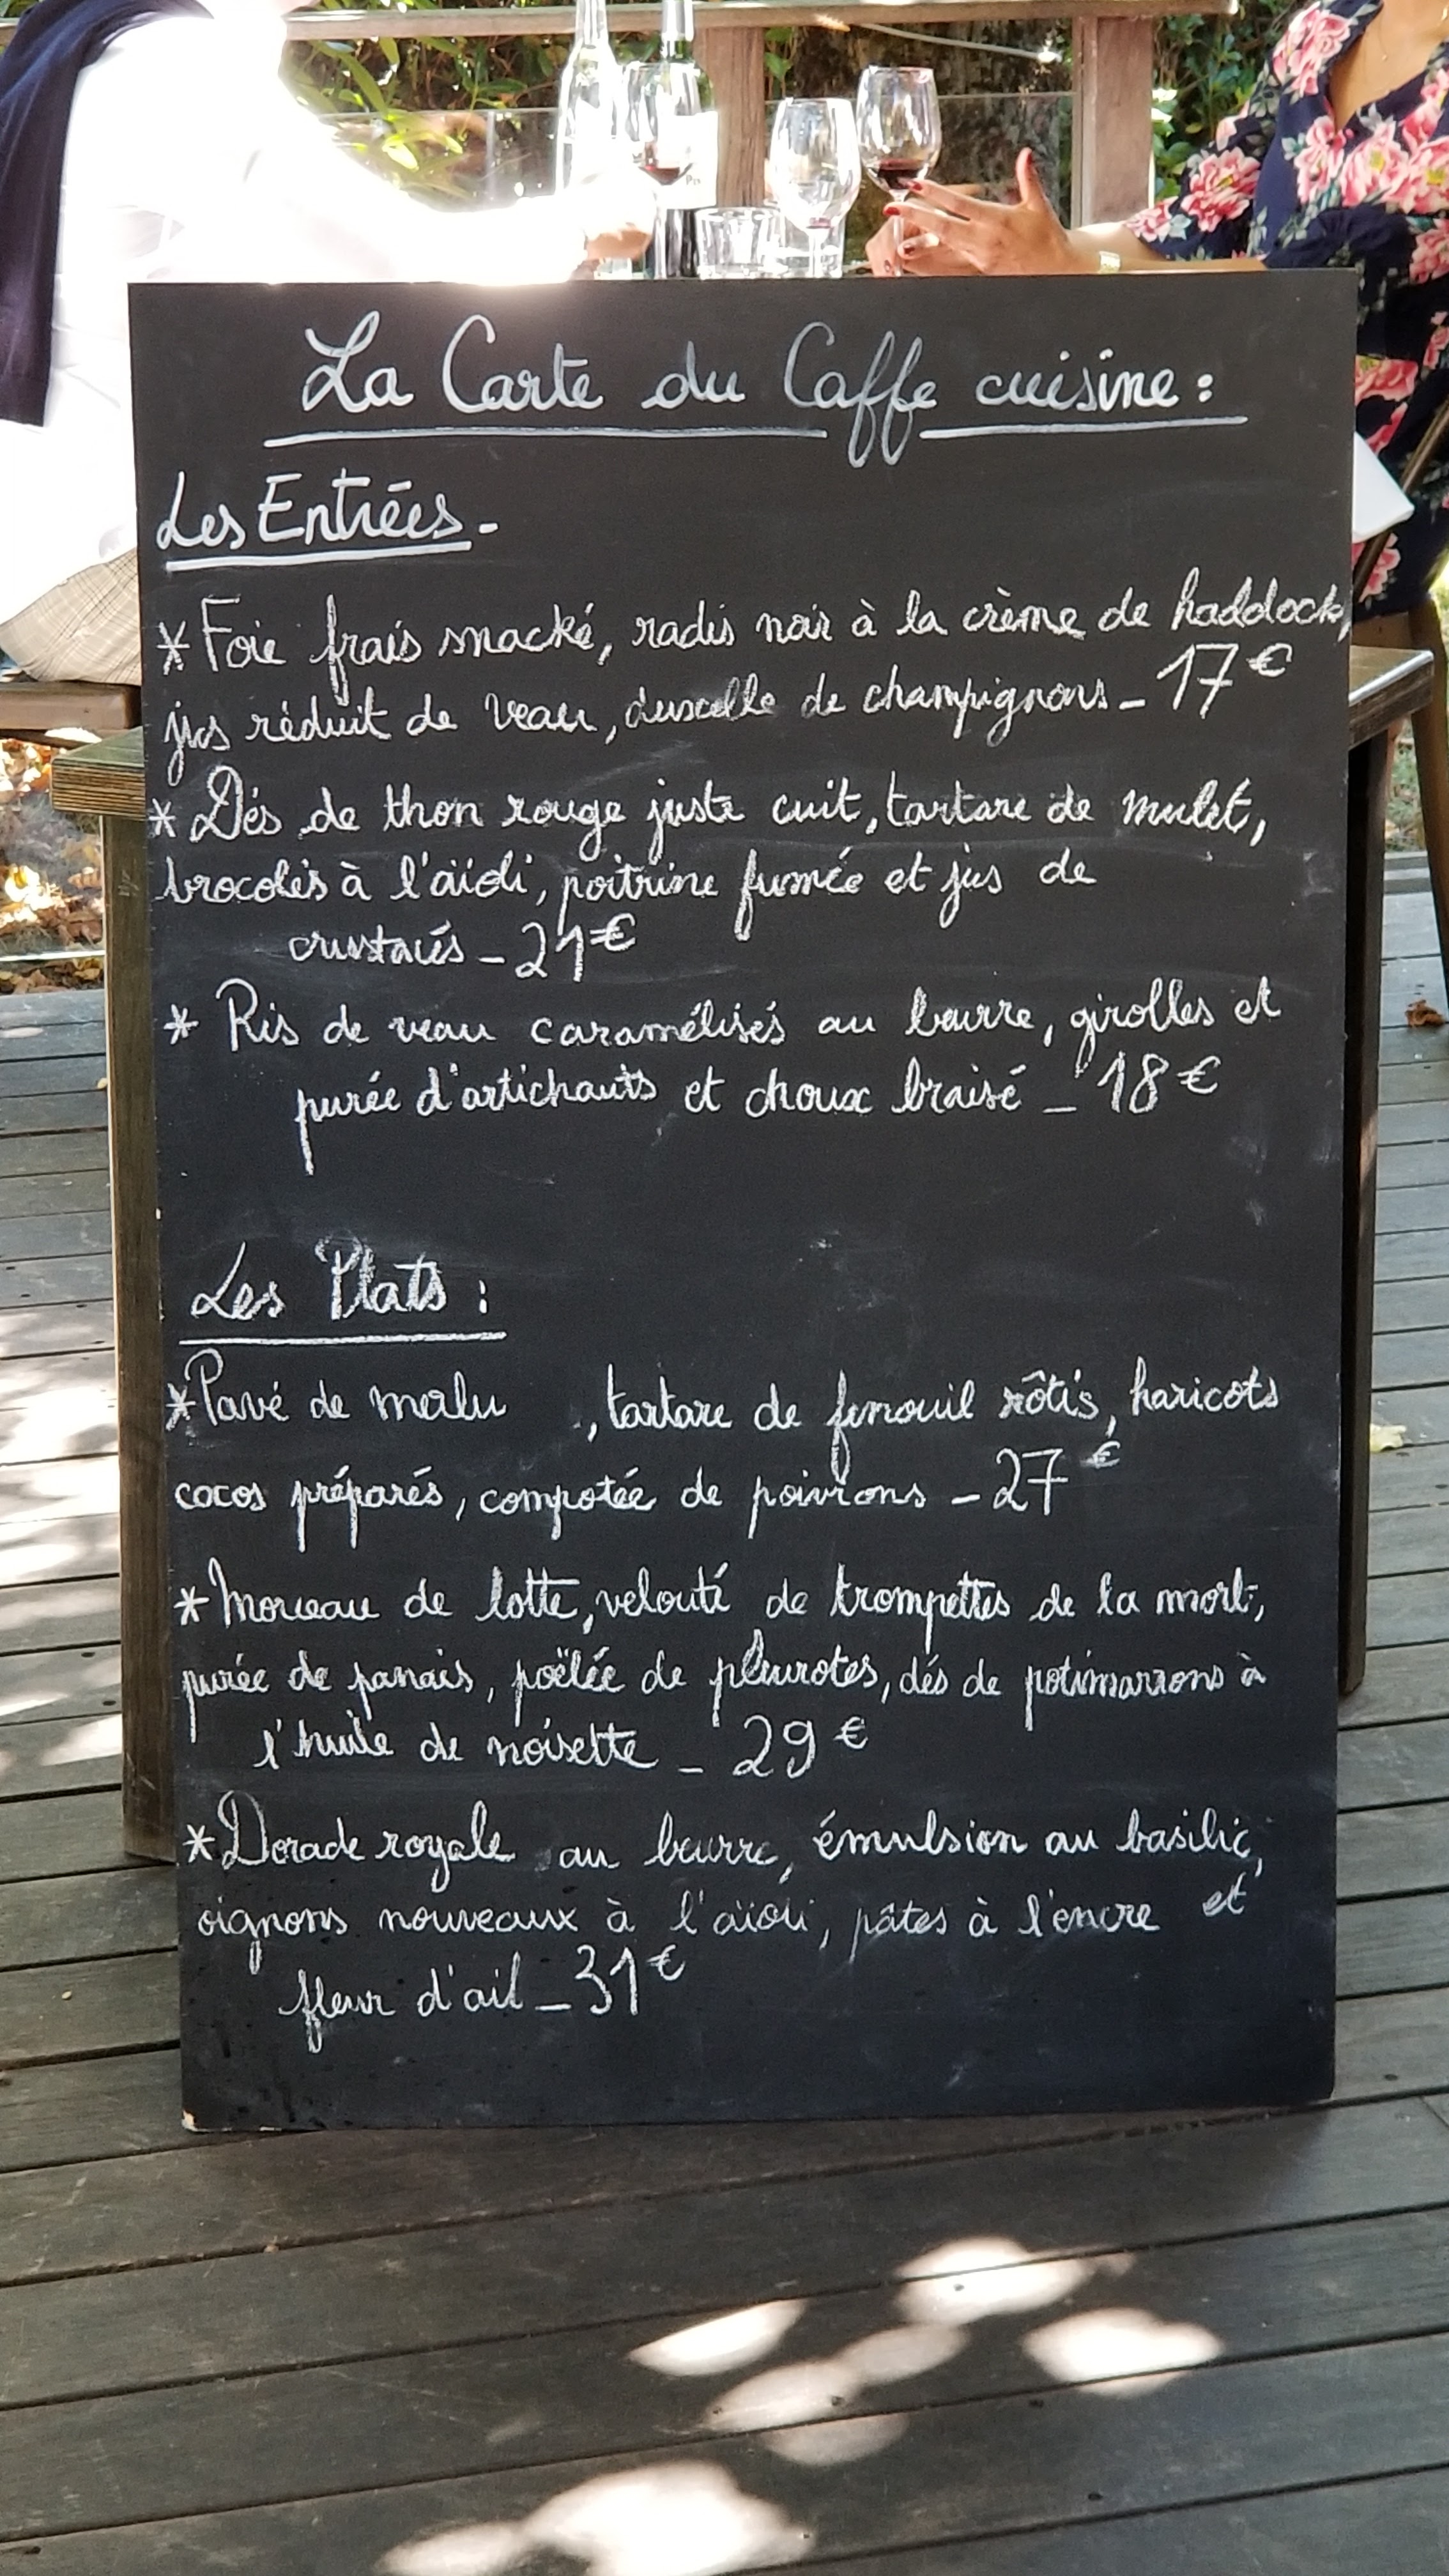 La Carte du Caffe cuisine :
Les Entrées -
* Foie frais snacké, radis noir à la crème de haddock,
jus réduit de veau, duxelle de champignons - 17€
* Dés de thon rouge juste cuit, tartare de mulet,
brocolis à l'aïoli, poitrine fumée et jus de
crustacés - 21€
* Ris de veau caramélisés au beurre, girolles et
purée d'artichauts et choux braisé - 18€
Les Plats :
* Pavé de merlu , tartare de fenouil rôtis, haricots
cocos préparés, compotée de poivrons - 27€
* Morceau de lotte, velouté de trompettes de la mort,
purée de panais, poëlée de pleurotes, dés de potimarrons à
l'huile de noisette - 29€
* Dorade royale au beurre, émulsion au basilic,
oignons nouveaux à l'aïoli, pâtes à l'encre et
fleur d'ail - 31€